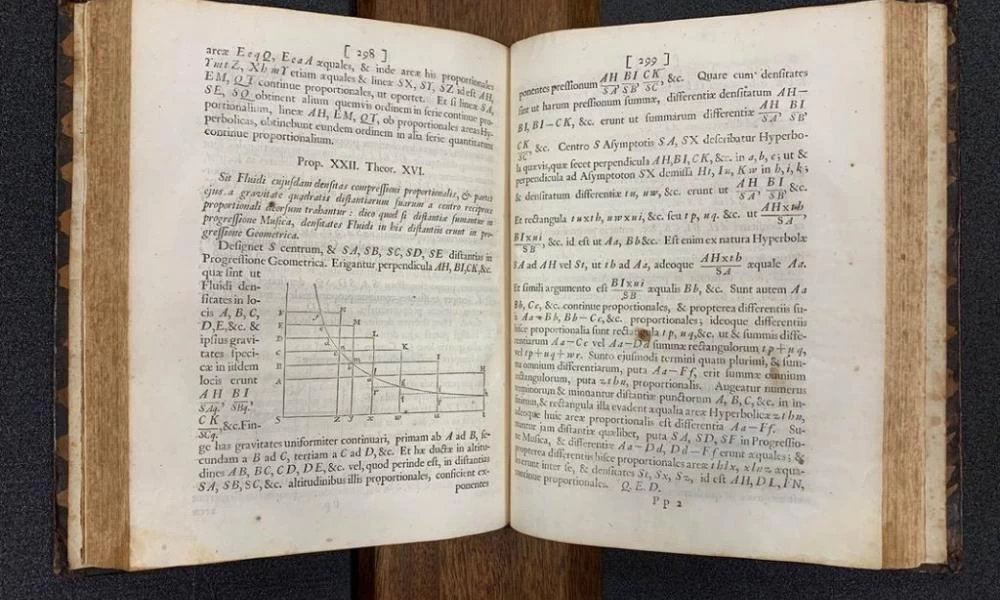 [ 298 ]
areæ EeqQ, EeaA æquales, & inde areæ his proportionales
YmtZ, XhmY etiam æquales & lineæ SX, ST, SZ id est AH,
EM, QT continue proportionales, ut oportet. Et si lineæ SA,
SE, SQ obtinent alium quemvis ordinem in serie continue pro-
portionalium, lineæ AH, EM, QT, ob proportionales areas Hy-
perbolicas, obtinebunt eundem ordinem in alia serie quantitatum
continue proportionalium.
Prop. XXII. Theor. XVI.
Sit Fluidi cujusdam densitas compressioni proportionalis, & partes
ejus a gravitate quadratis distantiarum suarum a centro reciproce
proportionali deorsum trahantur: dico quod si distantiæ sumantur in
progressione Musica, densitates Fluidi in his distantiis erunt in pro-
gressione Geometrica.
Designet S centrum, & SA, SB, SC, SD, SE distantias in
Progressione Geometrica. Erigantur perpendicula AH, BI, CK, &c.
quæ sint ut
Fluidi den-
sitates in lo-
cis A, B, C,
D, E, &c. &
ipsius gravi-
tates speci-
cæ in iisdem
locis erunt
AH BI
SAq. SBq.
CK
SCq. , &c. Fin-
ge has gravitates uniformiter continuari, primam ab A ad B, se-
cundam a B ad C, tertiam a C ad D, &c. Et hæ ductæ in altitu-
dines AB, BC, CD, DE, &c. vel, quod perinde est, in distantias
SA, SB, SC, &c. altitudinibus illis proportionales, conficient ex-
ponentes
F N
E M
D L
C K
B I
A H
S Z Y X
[ 299 ]
ponentes pressionum AH/SA, BI/SB, CK/SC, &c. Quare cum densitates
sint ut harum pressionum summæ, differentiæ densitatum AH—
BI, BI—CK, &c. erunt ut summarum differentiæ AH/SA, BI/SB,
CK/SC, &c. Centro S Asymptotis SA, SX describatur Hyperbo-
la quævis, quæ secet perpendicula AH, BI, CK, &c. in a, b, c; ut &
perpendicula ad Asymptoton SX demissa Ht, Iu, Kw in h, i, k;
& densitatum differentiæ tu, uw, &c. erunt ut AH/SA, BI/SB, &c.
Et rectangula tu×th, uw×ui, &c. seu tp, uq, &c. ut AH×th/SA,
BI×ui/SB, &c. id est ut Aa, Bb &c. Est enim ex natura Hyperbolæ
SA ad AH vel St, ut th ad Aa, adeoque AH×th/SA æquale Aa.
Et simili argumento est BI×ui/SB æqualis Bb, &c. Sunt autem Aa
Bb, Cc, &c. continue proportionales, & propterea differentiis su-
is Aa—Bb, Bb—Cc, &c. proportionales; ideoque differentiis
hisce proportionalia sunt rectangula tp, uq, &c. ut & summis diffe-
rentiarum Aa—Cc vel Aa—Dd summæ rectangulorum tp+uq,
vel tp+uq+wr. Sunto ejusmodi termini quam plurimi, & sum-
ma omnium differentiarum, puta Aa—Ff, erit summæ omnium
rectangulorum, puta zthn, proportionalis. Augeatur numerus
terminorum & minuantur distantiæ punctorum A, B, C, &c. in in-
finitum, & rectangula illa evadent æqualia areæ Hyperbolicæ zthn,
adeoque huic areæ proportionalis est differentia Aa—Ff. Su-
mantur jam distantiæ quælibet, puta SA, SD, SF in Progressio-
ne Musica, & differentiæ Aa—Dd, Dd—Ff erunt æquales; &
propterea differentiis hisce proportionales areæ thlx, xlnz æqua-
les erunt inter se, & densitates St, Sx, Sz, id est AH, DL, FN,
continue proportionales. Q. E. D.
Pp 2